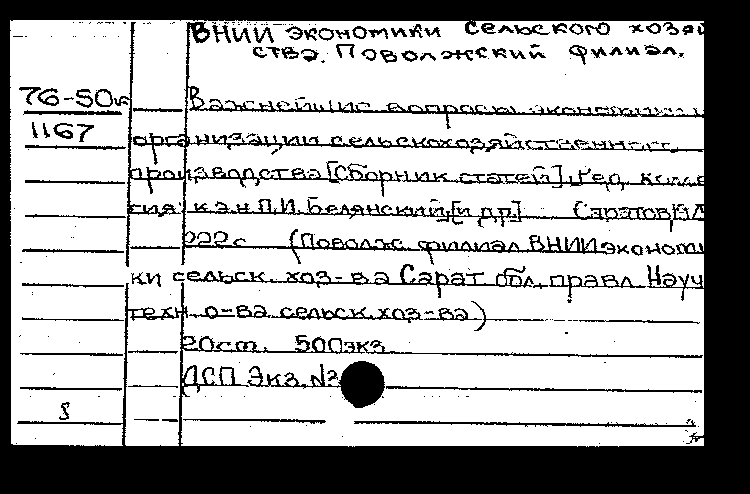 ВНИИ экономики сельского хозяй
ства. Поволжский филиал.
76-50к
1167
Важнейшие вопросы экономики и
организации сельскохозяйственного
производства [Сборник статей]. Ред. колле
гия: к.э.н. П.И. Белянский [и др.] Саратов,
222с (Поволж. филиал ВНИИ эконом
ки сельск. хоз-ва Сарат обл. правл. Науч
техн. о-ва сельск. хоз-ва)
20см. 500экз.
ДСП Экз. №
8